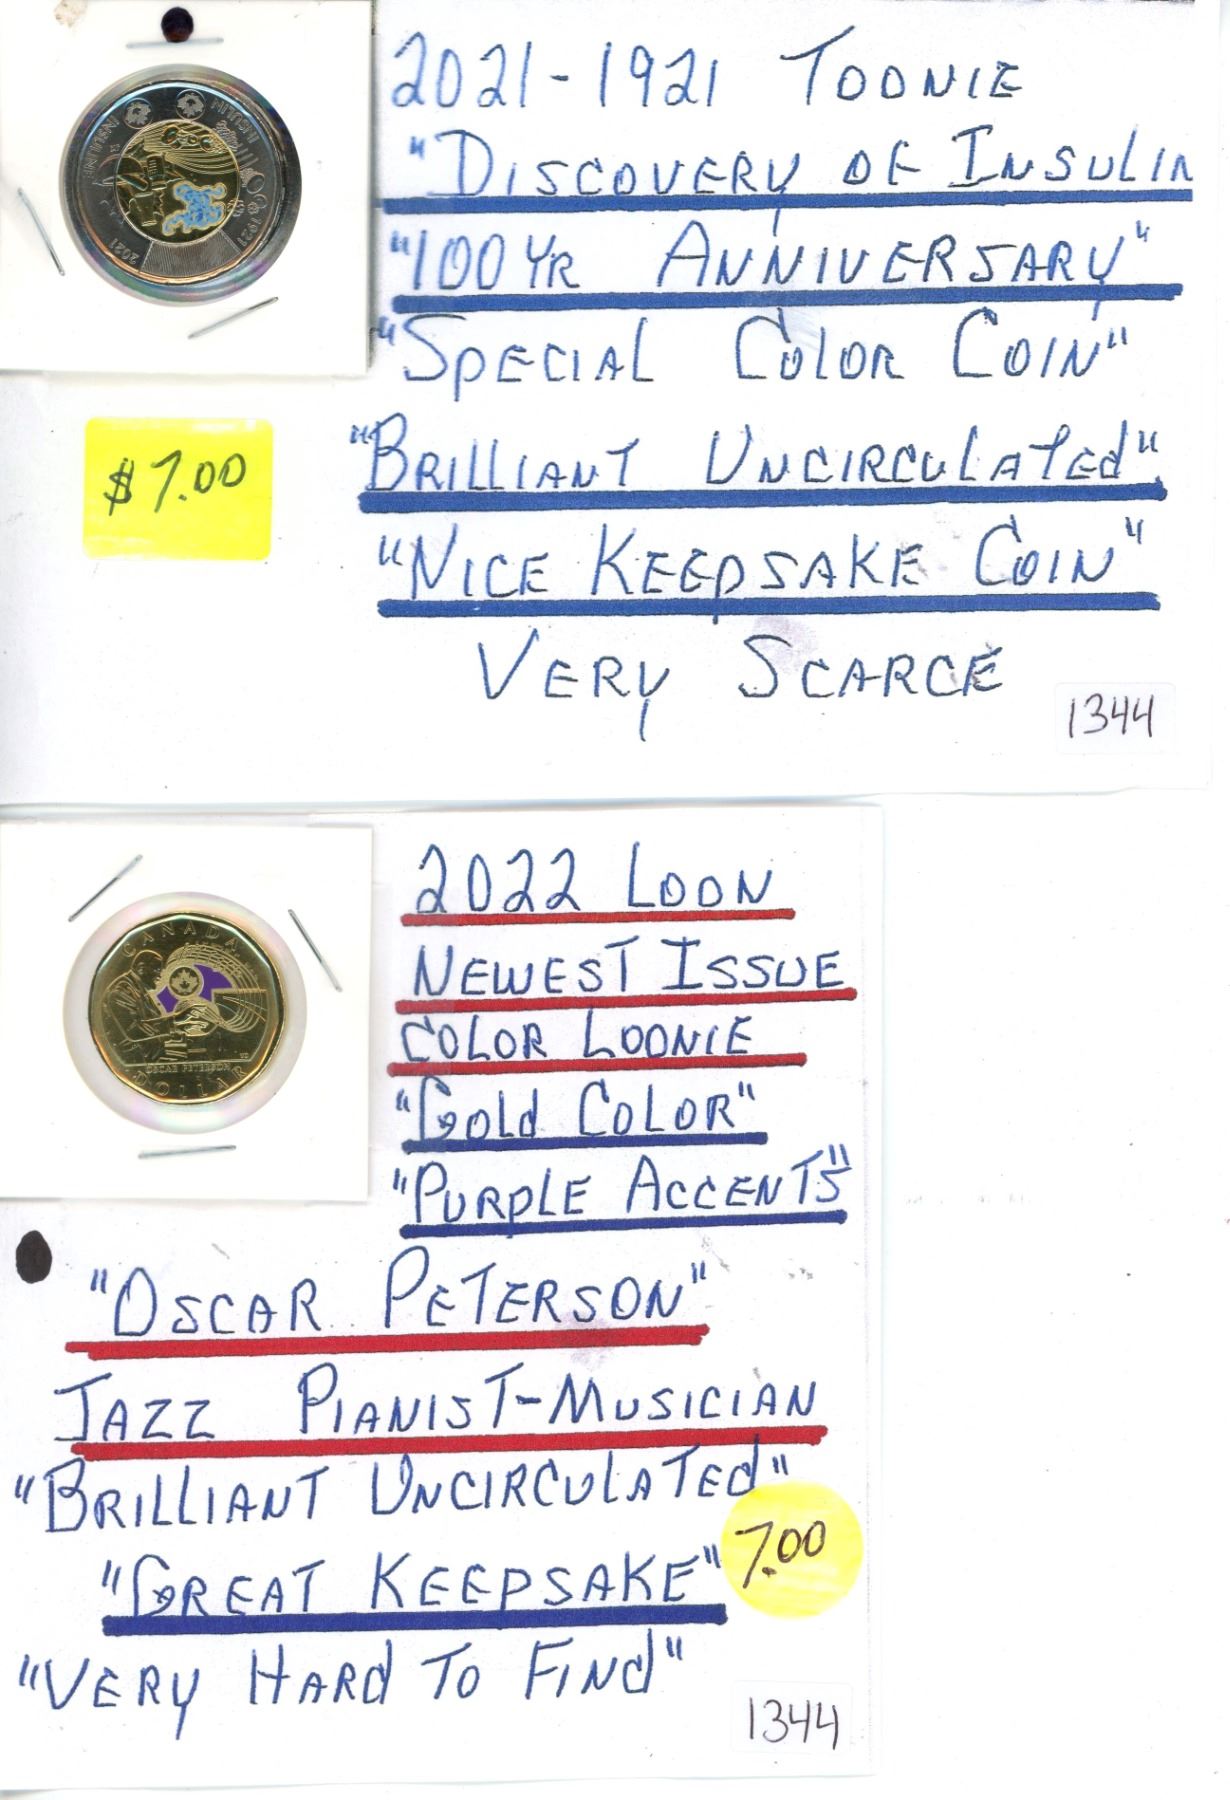 2021-1921 TOONIE
"DISCOVERY OF INSULIN
"100 YR ANNIVERSARY"
"SPECIAL COLOR COIN"
"BRILLIANT UNCIRCULATED"
"NICE KEEPSAKE COIN"
VERY SCARCE
$7.00
1344
INSULINE INSULIN
2021 1921
2022 LOON
NEWEST ISSUE
COLOR LOONIE
"GOLD COLOR"
"PURPLE ACCENTS"
CANADA
OSCAR PETERSON
DOLLAR
"OSCAR PETERSON"
JAZZ PIANIST-MUSICIAN
"BRILLIANT UNCIRCULATED"
"GREAT KEEPSAKE"
7.00
"VERY HARD TO FIND"
1344